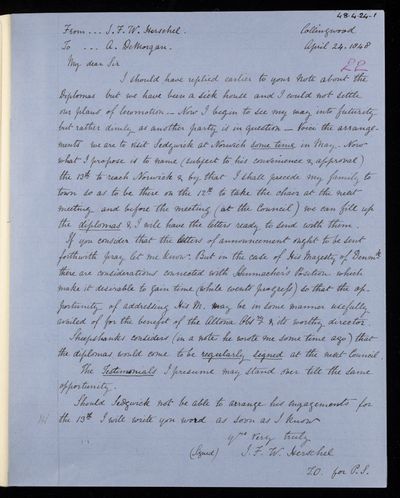 48·4·24·1
From ... J. F. W. Herschel. Collingwood
To ... A. DeMorgan. April 24. 1848
My dear Sir
I should have replied earlier to your note about the
Diplomas but we have been a sick house and I could not settle
our plans of locomotion — Now I begin to see my way into futurity
but rather dimly as another party is in question — Since the arrange-
ments we are to visit Sedgwick at Norwich some time in May. Now
what I propose is to name (subject to his convenience & approval)
the 13th to reach Norwich & by that I shall precede my family to
town so as to be there on the 12th to take the chair at the next
meeting and before the meeting (at the Council) we can fill up
the diplomas & I will have the letters ready to send with them.
If you consider that the letters of announcement ought to be sent
forthwith pray let me know. But in the case of His Majesty of Denmk
there are considerations connected with Shumacher's Position which
make it desirable to gain time (while events progress) so that the op-
portunity of addressing His M. may be in some manner usefully
availed of for the benefit of the Altona Obsy & its worthy director.
Sheepshanks considers (in a note he wrote me some time ago) that
the diplomas would come to be regularly signed at the next Council.
The Testimonials I presume may stand over till the same
opportunity.
Should Sedgwick not be able to arrange his engagements for
the 13th I will write you word as soon as I know
yrs very truly
(Signed) J. F. W. Herschel
for P.S.